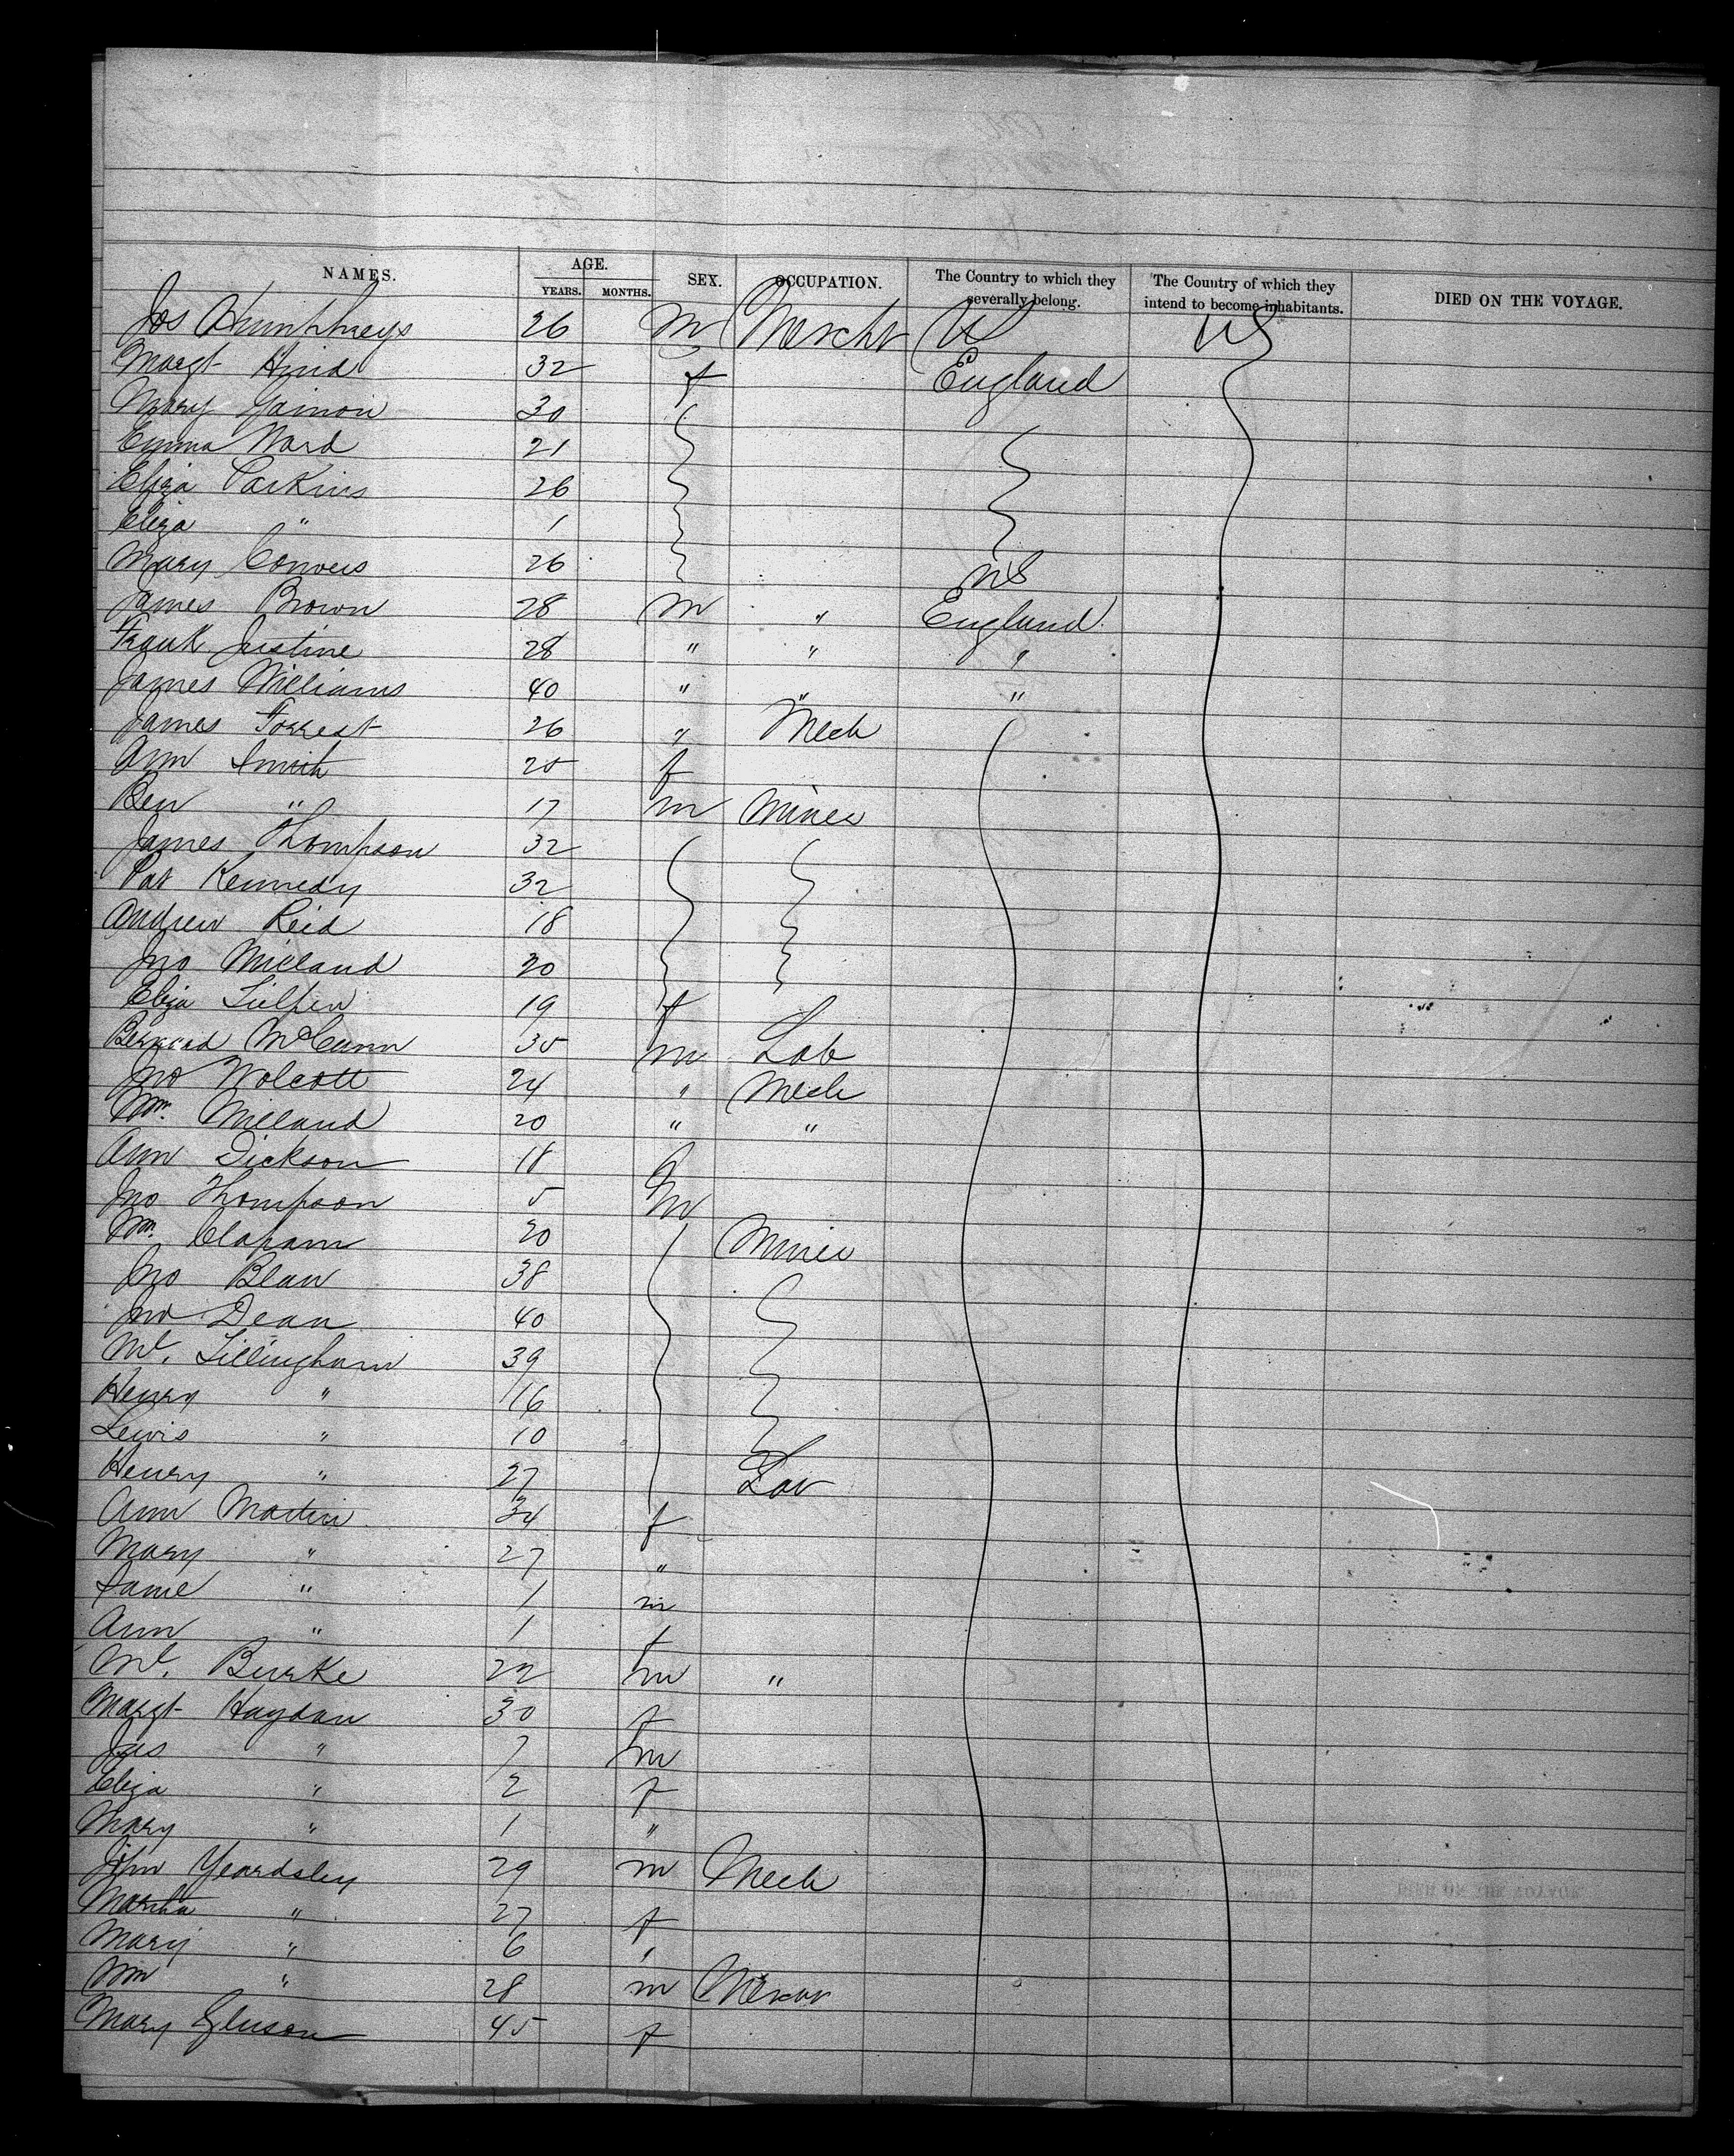 NAMES. AGE. SEX. OCCUPATION. The Country to which they severally belong. The Country of which they intend to become inhabitants. DIED ON THE VOYAGE.
YEARS. MONTHS.
Jos Humphreys 26 m Mercht US US
Margt Hind 32 f England
Mary Gainon 30
Emma Ward 21
Eliza Parkins 26
Eliza " 1
Mary Convers 26 US
James Brown 28 m " England
Frank Justine 28 " " "
James Williams 40 " " "
James Forrest 26 " Mech
Ann Smith 25 f
Ben " 17 m Miner
James Thompson 32
Pat Kennedy 32
Andrew Reid 18
Jno Milland 20
Eliza 19 f
Bernard McCunn 35 m Lab
Jno Wolcott 24 " Mech
Wm. Milland 20 " "
Ann Dickson 18 f
Jno Thompson 5 m
Wm. Clapam 20 Miner
Jno Blan 38
Jno Dean 40
Ml. Tillingham 39
Henry " 16
Lewis " 10
Henry " 27 Lab
Ann Martin 34 f
Mary " 27 "
" 1 m
Ann " 1 f
Ml. Burke 22 m "
Margt Haydan 30 f
Jas " 7 m
Eliza " 2 f
Mary " 1 "
John Yeardsley 29 m Mech
Martha " 27 f
Mary " 6 "
Wm " 28 m
Mary Gleason 45 f